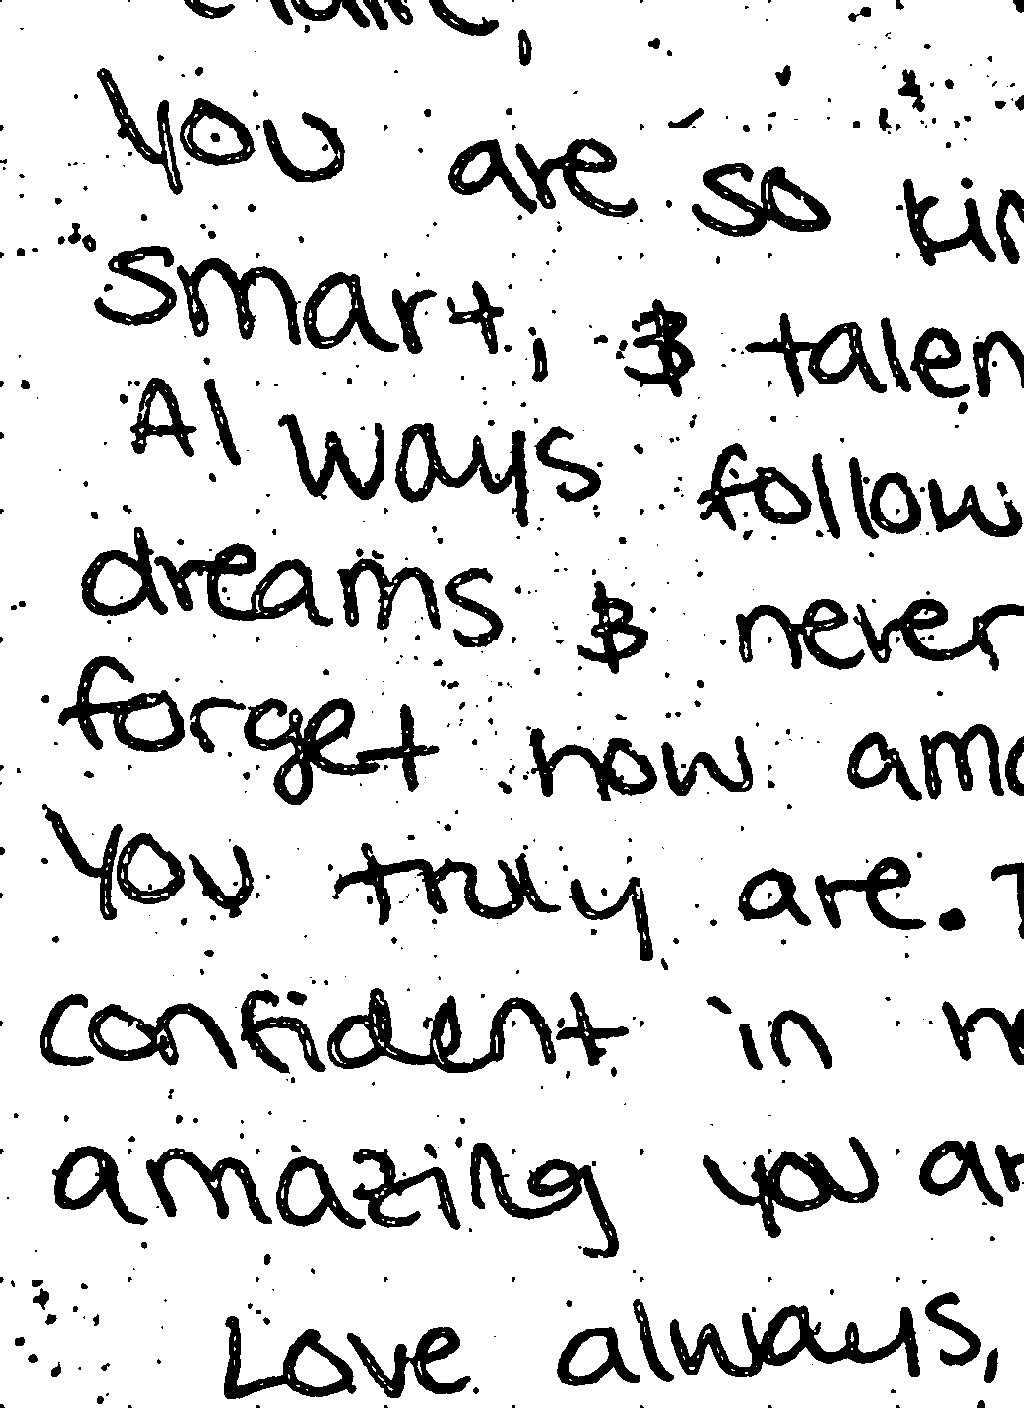 You are so
smart, & talen
Always follow
dreams & never
forget how ama
you truly are.
confident in
amazing you ar
Love always,